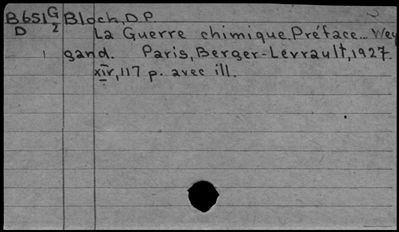 B651 G/2 Bloch, D.P.
D La Guerre chimique. Préface... Wey
gand. Paris, Berger-Levrault, 1927.
xiv, 117 p. avec ill.